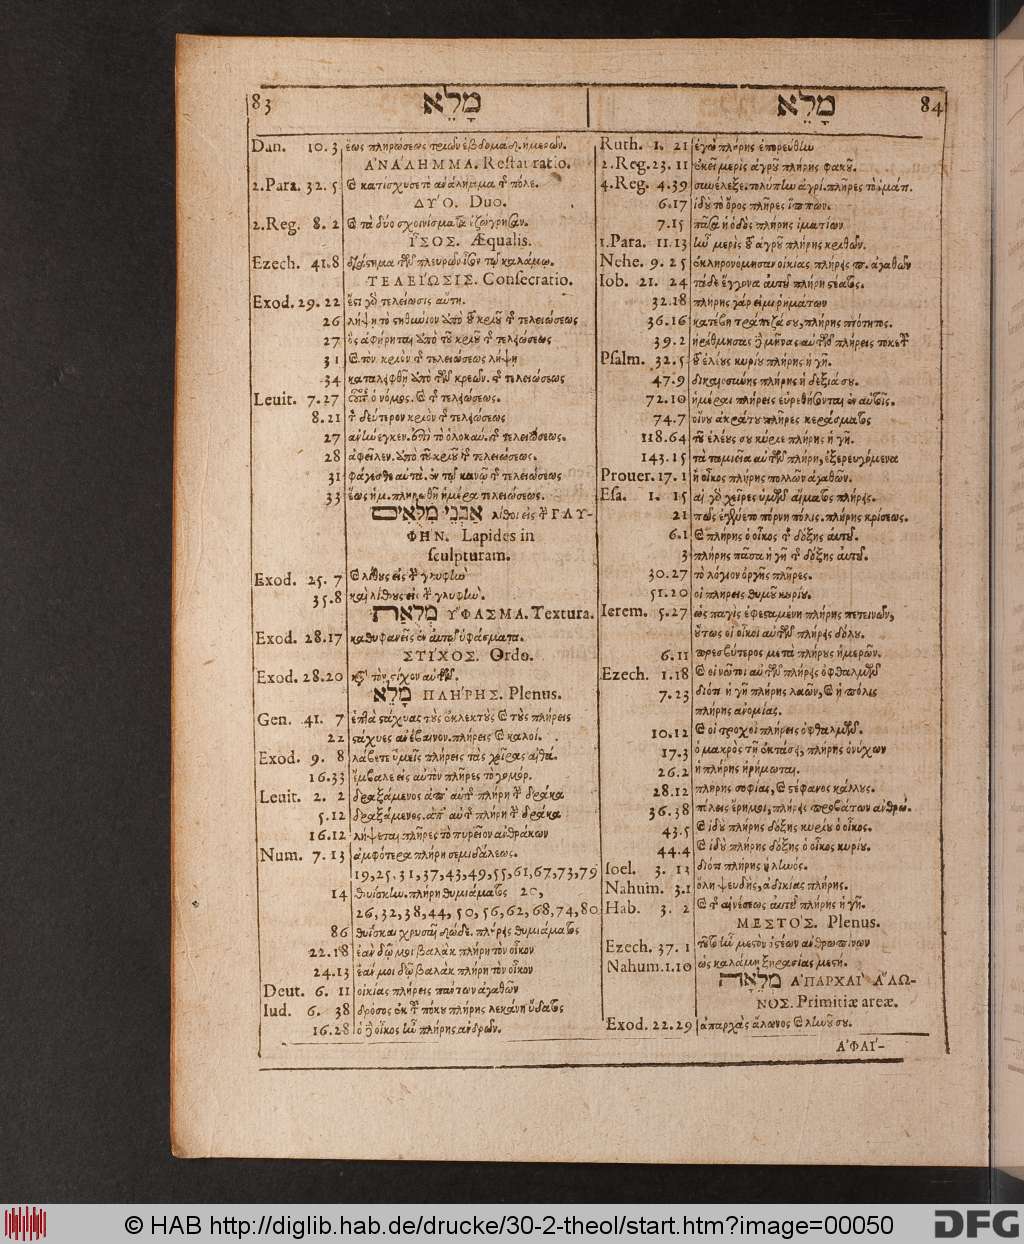 83 מָלֵא
Dan. 10.3 ἕως πληρώσεως τριῶν ἑβδομάδων ἡμερῶν.
ἈΝΆΛΗΜΜΑ. Restauratio.
2.Para. 32.5 καὶ κατίσχυσε τὸ ἀνάλημμα τῆς πόλε.
ΔΎΟ. Duo.
2.Reg. 8.2 καὶ τὰ δύο σχοινίσματα ἐζώγρησεν.
ἼΣΟΣ. Æqualis.
Ezech. 41.8 διάστημα τῶν πλευρῶν ἴσον τῷ καλάμῳ.
ΤΕΛΕΊΩΣΙΣ. Consecratio.
Exod. 29.22 ἔστι γὰρ τελείωσις αὕτη.
26 λήψῃ τὸ στηθύνιον ἀπὸ τοῦ κριοῦ τῆς τελειώσεως
27 ὃς ἀφῄρηται ἀπὸ τοῦ κριοῦ τῆς τελειώσεως
31 καὶ τὸν κριὸν τῆς τελειώσεως λήψῃ
34 καταλειφθῇ ἀπὸ τῶν κρεῶν τῆς τελειώσεως
Leuit. 7.27 οὗτος ὁ νόμος καὶ τῆς τελειώσεως.
8.21 τὸν δεύτερον κριὸν τῆς τελειώσεως
27 ἀνήνεγκεν ἐπὶ τὸ ὁλοκαύ. τῆς τελειώσεως.
28 ἀφεῖλεν ἀπὸ τοῦ κριοῦ τῆς τελειώσεως.
31 φάγεσθε αὐτὰ ἐν τῷ κανῷ τῆς τελειώσεως
33 ἕως ἡμ. πληρωθῇ ἡμέρα τελειώσεως.
אַבְנֵי מִלֻּאִים λίθοι εἰς τὴν ΓΛΥ-
ΦΉΝ. Lapides in
sculpturam.
Exod. 25.7 καὶ λίθους εἰς τὴν γλυφὴν
35.8 καὶ λίθους εἰς τὴν γλυφήν.
מִלֻּאַת ὝΦΑΣΜΑ. Textura.
Exod. 28.17 καθυφανεῖς ἐν αὐτῷ ὑφάσματα.
ΣΤΊΧΟΣ. Ordo.
Exod. 28.20 κατὰ τὸν στίχον αὐτῶν.
מָלֵא ΠΛΉΡΗΣ. Plenus.
Gen. 41.7 ἑπτὰ στάχυας τοὺς ἐκλεκτοὺς καὶ τοὺς πλήρεις
22 στάχυες ἀνέβαινον πλήρεις καὶ καλοί.
Exod. 9.8 λάβετε ὑμεῖς πλήρεις τὰς χεῖρας αἰθά.
16.33 ἔμβαλε εἰς αὐτὸν πλῆρες τὸ γομόρ.
Leuit. 2.2 δραξάμενος ἀπ' αὐτῆς πλήρη τὴν δράκα
5.12 δραξάμενος ἀπ' αὐτῆς πλήρη τὴν δράκα
16.12 λήψεται πλῆρες τὸ πυρεῖον ἀνθράκων
Num. 7.13 ἀμφότερα πλήρη σεμιδάλεως.
19,25,31,37,43,49,55,61,67,73,79
14 θυΐσκην πλήρη θυμιάματος 20,
26,32,38,44,50,56,62,68,74,80
86 θυΐσκαι χρυσαῖ δώδε. πλήρεις θυμιάματος
22.18 ἐὰν δῷ μοι βαλὰκ πλήρη τὸν οἶκον
24.13 ἐάν μοι δῷ βαλὰκ πλήρη τὸν οἶκον
Deut. 6.11 οἰκίας πλήρεις πάντων ἀγαθῶν
Iud. 6.38 δρόσος ἐκ τοῦ πόκου πλήρης λεκάνη ὕδατος
16.28 ὁ δὲ οἶκος ἦν πλήρης ἀνδρῶν.
מָלֵא 84
Ruth. 1.21 ἐγὼ πλήρης ἐπορεύθην
2.Reg. 23.11 ἐκεῖ μερὶς ἀγροῦ πλήρης φακοῦ.
4.Reg. 4.39 συνέλεξε τολύπην ἀγρί. πλῆρες τὸ ἱμάτ.
6.17 ἰδοὺ τὸ ὄρος πλῆρες ἵππων.
7.15 πᾶσα ἡ ὁδὸς πλήρης ἱματίων
1.Para. 11.13 ἦν μερὶς τοῦ ἀγροῦ πλήρης κριθῶν.
Nehe. 9.25 ἐκληρονόμησαν οἰκίας πλήρεις π. ἀγαθῶν
Iob. 21.24 τὰ δὲ ἔγγονα αὐτοῦ πλήρη στέατος.
32.18 πλήρης γάρ εἰμι ῥημάτων
36.16 κατέβη τράπεζά σου πλήρης πιότητος.
39.2 ἠρίθμησας δὲ μῆνας αὐτῶν πλήρεις τοκετοῦ
Psalm. 32.5 τοῦ ἐλέους κυρίου πλήρης ἡ γῆ.
47.9 δικαιοσύνης πλήρης ἡ δεξιά σου.
72.10 ἡμέραι πλήρεις εὑρεθήσονται ἐν αὐτοῖς.
74.7 οἴνου ἀκράτου πλῆρες κεράσματος
118.64 τοῦ ἐλέους σου κύριε πλήρης ἡ γῆ.
143.15 τὰ ταμιεῖα αὐτῶν πλήρη, ἐξερευγόμενα
Prouer. 17.1 ἢ οἶκος πλήρης πολλῶν ἀγαθῶν.
Esa. 1.15 αἱ γὰρ χεῖρες ὑμῶν αἵματος πλήρεις.
21 πῶς ἐγένετο πόρνη πόλις πλήρης κρίσεως.
6.1 καὶ πλήρης ὁ οἶκος τῆς δόξης αὐτοῦ.
3 πλήρης πᾶσα ἡ γῆ τῆς δόξης αὐτοῦ.
30.27 τὸ λόγιον ὀργῆς πλῆρες.
51.20 οἱ πλήρεις θυμοῦ κυρίου.
Ierem. 5.27 ὡς παγὶς ἐφεσαμένη πλήρης πετεινῶν,
οὕτως οἱ οἶκοι αὐτῶν πλήρεις δόλου.
6.11 πρεσβύτερος μετὰ πλήρους ἡμερῶν.
Ezech. 1.18 καὶ οἱ νῶτοι αὐτῶν πλήρεις ὀφθαλμῶν
7.23 διότι ἡ γῆ πλήρης λαῶν, καὶ ἡ πόλις
πλήρης ἀνομίας.
10.12 καὶ οἱ τροχοὶ πλήρεις ὀφθαλμῶν.
17.3 ὁ μακρὸς τῇ ἐκτάσει, πλήρης ὀνύχων
26.2 ἡ πλήρης ἠρήμωται.
28.12 πλήρης σοφίας, καὶ στέφανος κάλλους.
36.38 πόλεις ἔρημοι, πλήρεις προβάτων ἀνθρώ.
43.5 καὶ ἰδοὺ πλήρης δόξης κυρίου ὁ οἶκος.
44.4 καὶ ἰδοὺ πλήρης δόξης ὁ οἶκος κυρίου.
Ioel. 3.13 διότι πλήρης ἡ ληνός.
Nahum. 3.1 ὅλη ψευδὴς, ἀδικίας πλήρης.
Hab. 3.2 καὶ τῆς αἰνέσεως αὐτοῦ πλήρης ἡ γῆ.
ΜΕΣΤΌΣ. Plenus.
Ezech. 37.1 τοῦτο ἦν μεστὸν ὀστέων ἀνθρωπίνων
Nahum. 1.10 ὡς καλάμη ξηρασίας μεστή.
מְלֵאָה ἈΠΑΡΧΑῚ ἍΛΩ-
ΝΟΣ. Primitiæ areæ.
Exod. 22.29 ἀπαρχὰς ἅλωνος καὶ ληνοῦ σου.
ἈΦΑΊ-
© HAB http://diglib.hab.de/drucke/30-2-theol/start.htm?image=00050
DFG